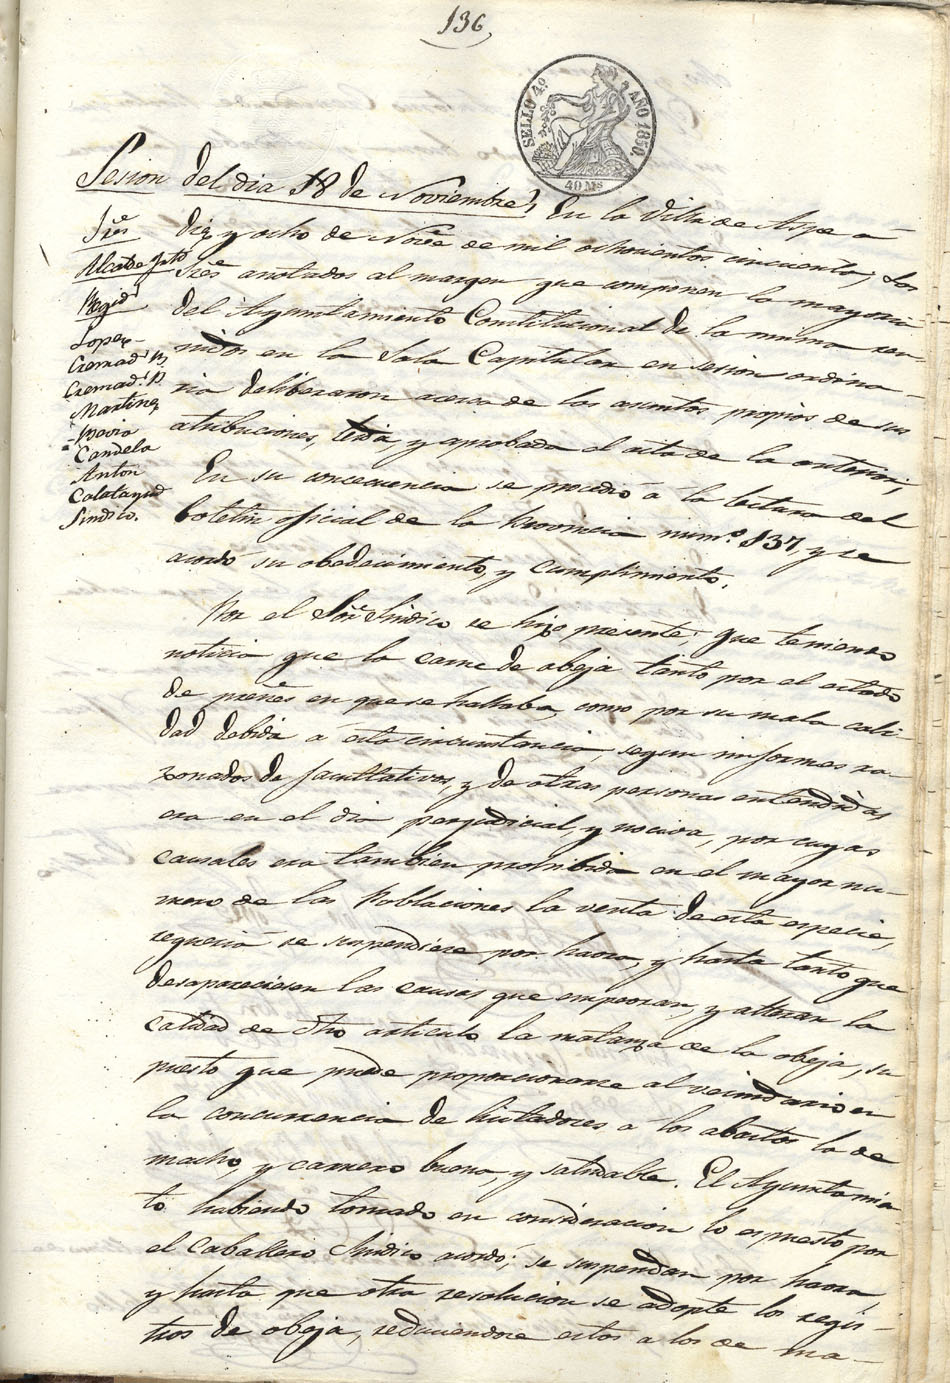 136
SELLO 4º AÑO 1850.
40 Ms
Sesion del dia 18 de Noviembre, En la Villa de Aspe á
diez y ocho de Nov.e de mil ochocientos cincuenta; Los
Sres anotados al margen que componen la mayoria
del Ayuntamiento Constitucional de la misma reu-
nidos en la Sala Capitular en sesion ordina-
ria deliberaron acerca de los asuntos propios de sus
atribuciones, leida, y aprobada el acta de la anterior;
En su consecuencia se procedió á la lectura del
boletin oficial de la Provincia num.º 137, y se
acordó su obedecimiento, y cumplimiento.
Sres
Alcalde
Regid.s
Lopez
Cremad.s
Cremad.s
Martinez
Pavia
Candela
Anton
Calatayud
Sindico.
Por el Sor Sindico se hizo presente: que teniendo
noticia que la carne de obeja tanto por el estado
de preñes en que se hallaba, como por su mala cali-
dad debida á esta circunstancia, segun informes ra-
zonados de facultativos, y de otras personas entendidas
era en el dia perjudicial, y nociva, por cuyas
causales era tambien prohibida en el mayor nu-
mero de las Poblaciones la venta de esta especie,
requeria se suspendiese por haora, y hasta tanto que
desapareciesen las causas que empeoran, y alteran la
calidad de dho articulo la matanza de la obeja, su
puesto que puede proporcionarse al vecindario en
la concurrencia de licitadores a los abastos la de
macho, y carnero buena, y saludable. El Ayuntamien
to habiendo tomado en consideracion lo espuesto por
el Caballero Sindico acordó; se suspendan por haora,
y hasta que otra resolucion se adopte los regis-
tros de obeja, reduciendose estos a los de ma-